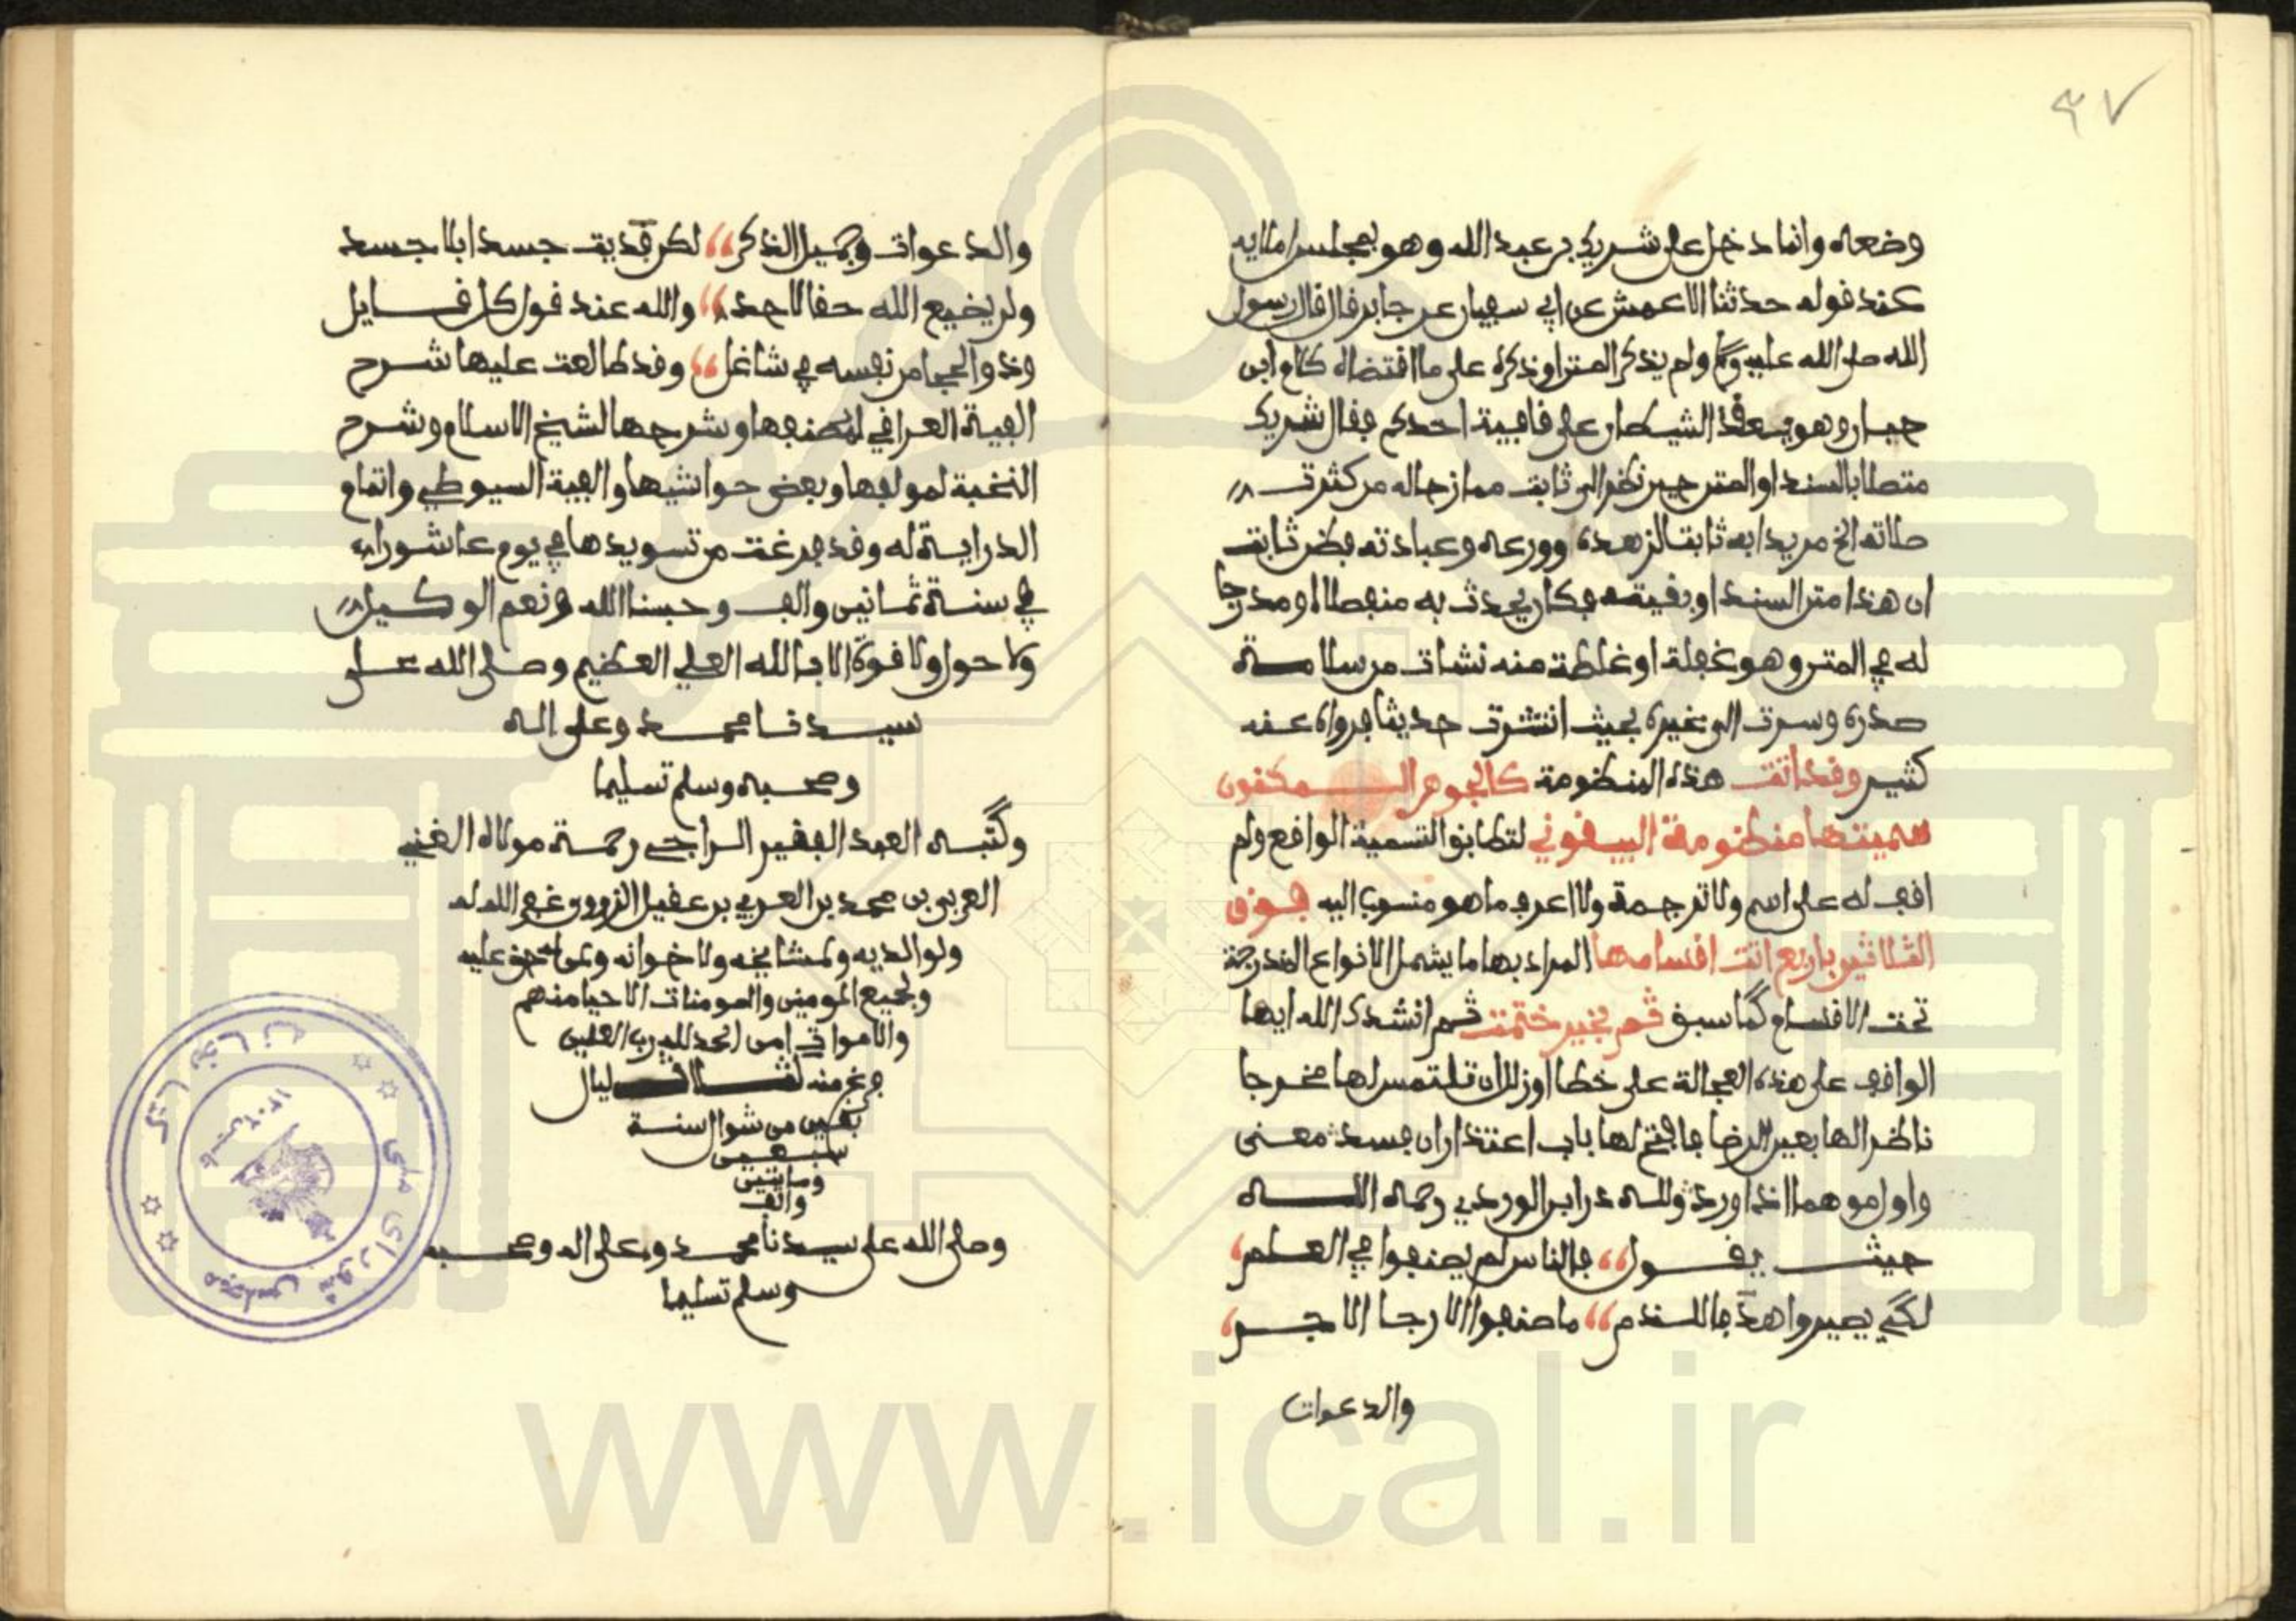 ٣٧
وضعه وانما دخل على شريك بن عبد الله وهو بمجلس املايه
عند قوله حدثنا الاعمش عن ابي سفيان عن جابر قال قال رسول
الله صلى الله عليه وسلم ولم يذكر المتن او ذكره على ما اقتضاه كلام ابن
حبان وهو يعقد الشيطان على قافية احدكم فقال شريك
متصلا بالسند او المتن حين نظر الى ثابت ممازحا له من كثرت
صلاته الخ مريدا به ثابتا لزهده وورعه وعبادته فظن ثابت
ان هذا متن السند او بقيته فكان يحدث به منفصلا او مدرجا
له في المتن وهو غفلة او غلطة منه نشات من سلامة
صدره وسرت الى غيره بحيث انتشرت حديثا فرواه عنه
كثير وقد اتت هذه المنظومة كالجوهر المكنون
سميتها منظومة البيقوني لتطابق التسمية الواقع ولم
اقف له على اسم ولا ترجمة ولا اعرف ما هو منسوب اليه فوق
الثلاثين باربع اتت اقسامها المراد بها ما يشمل الانواع المندرجة
تحت الاقسام كما سبق ثم بخير ختمت ثم انشدك الله ايها
الواقف على هذه العجالة على خطا او زلل ان تلتمس لها مخرجا
ناظرا لها بعين الرضا فافتح لها باب اعتذار ان فسد معنى
واول موهما اذا ورد ولله در ابن الوردي رحمه الله
حيث يقول فالناس لم يصنفوا في العلم
لكي يصيروا هدفا للذم ما صنفوا الا رجا الاجر
والدعوات
والدعوات وجميل الذكر لكن فديت جسدا بلا حسد
ولن يضيع الله حقا لاحد والله عند قول كل قايل
وذو الحجا من نفسه في شاغل وقد طالعت عليها شرح
الفية العراقي لمصنفها وشرحها لشيخ الاسلام وشرح
النخبة لمولفها وبعض حواشيها والفية السيوطي واتمام
الدراية له وقد فرغت من تسويدها في يوم عاشوراء
في سنة ثمانين والف وحسبنا الله ونعم الوكيل
ولا حول ولا قوة الا بالله العلي العظيم وصلى الله على
سيدنا محمد وعلى اله
وصحبه وسلم تسليما
وكتبه العبد الفقير الراجي رحمة مولاه الغني
العربي بن محمد بن العربي بن عقيل غفر الله له
ولوالديه ولمشايخه ولاخوانه ولمن له حق عليه
ولجميع المومنين والمومنات الاحيا منهم
والاموات امين الحمد لله رب العلمين
فرغ منه ليال
بقين من شوال سنة
سبعين
ومايتين
والف
وصلى الله على سيدنا محمد وعلى اله وصحبه
وسلم تسليما
كتابخانه مجلس شورای ملی
www.ical.ir